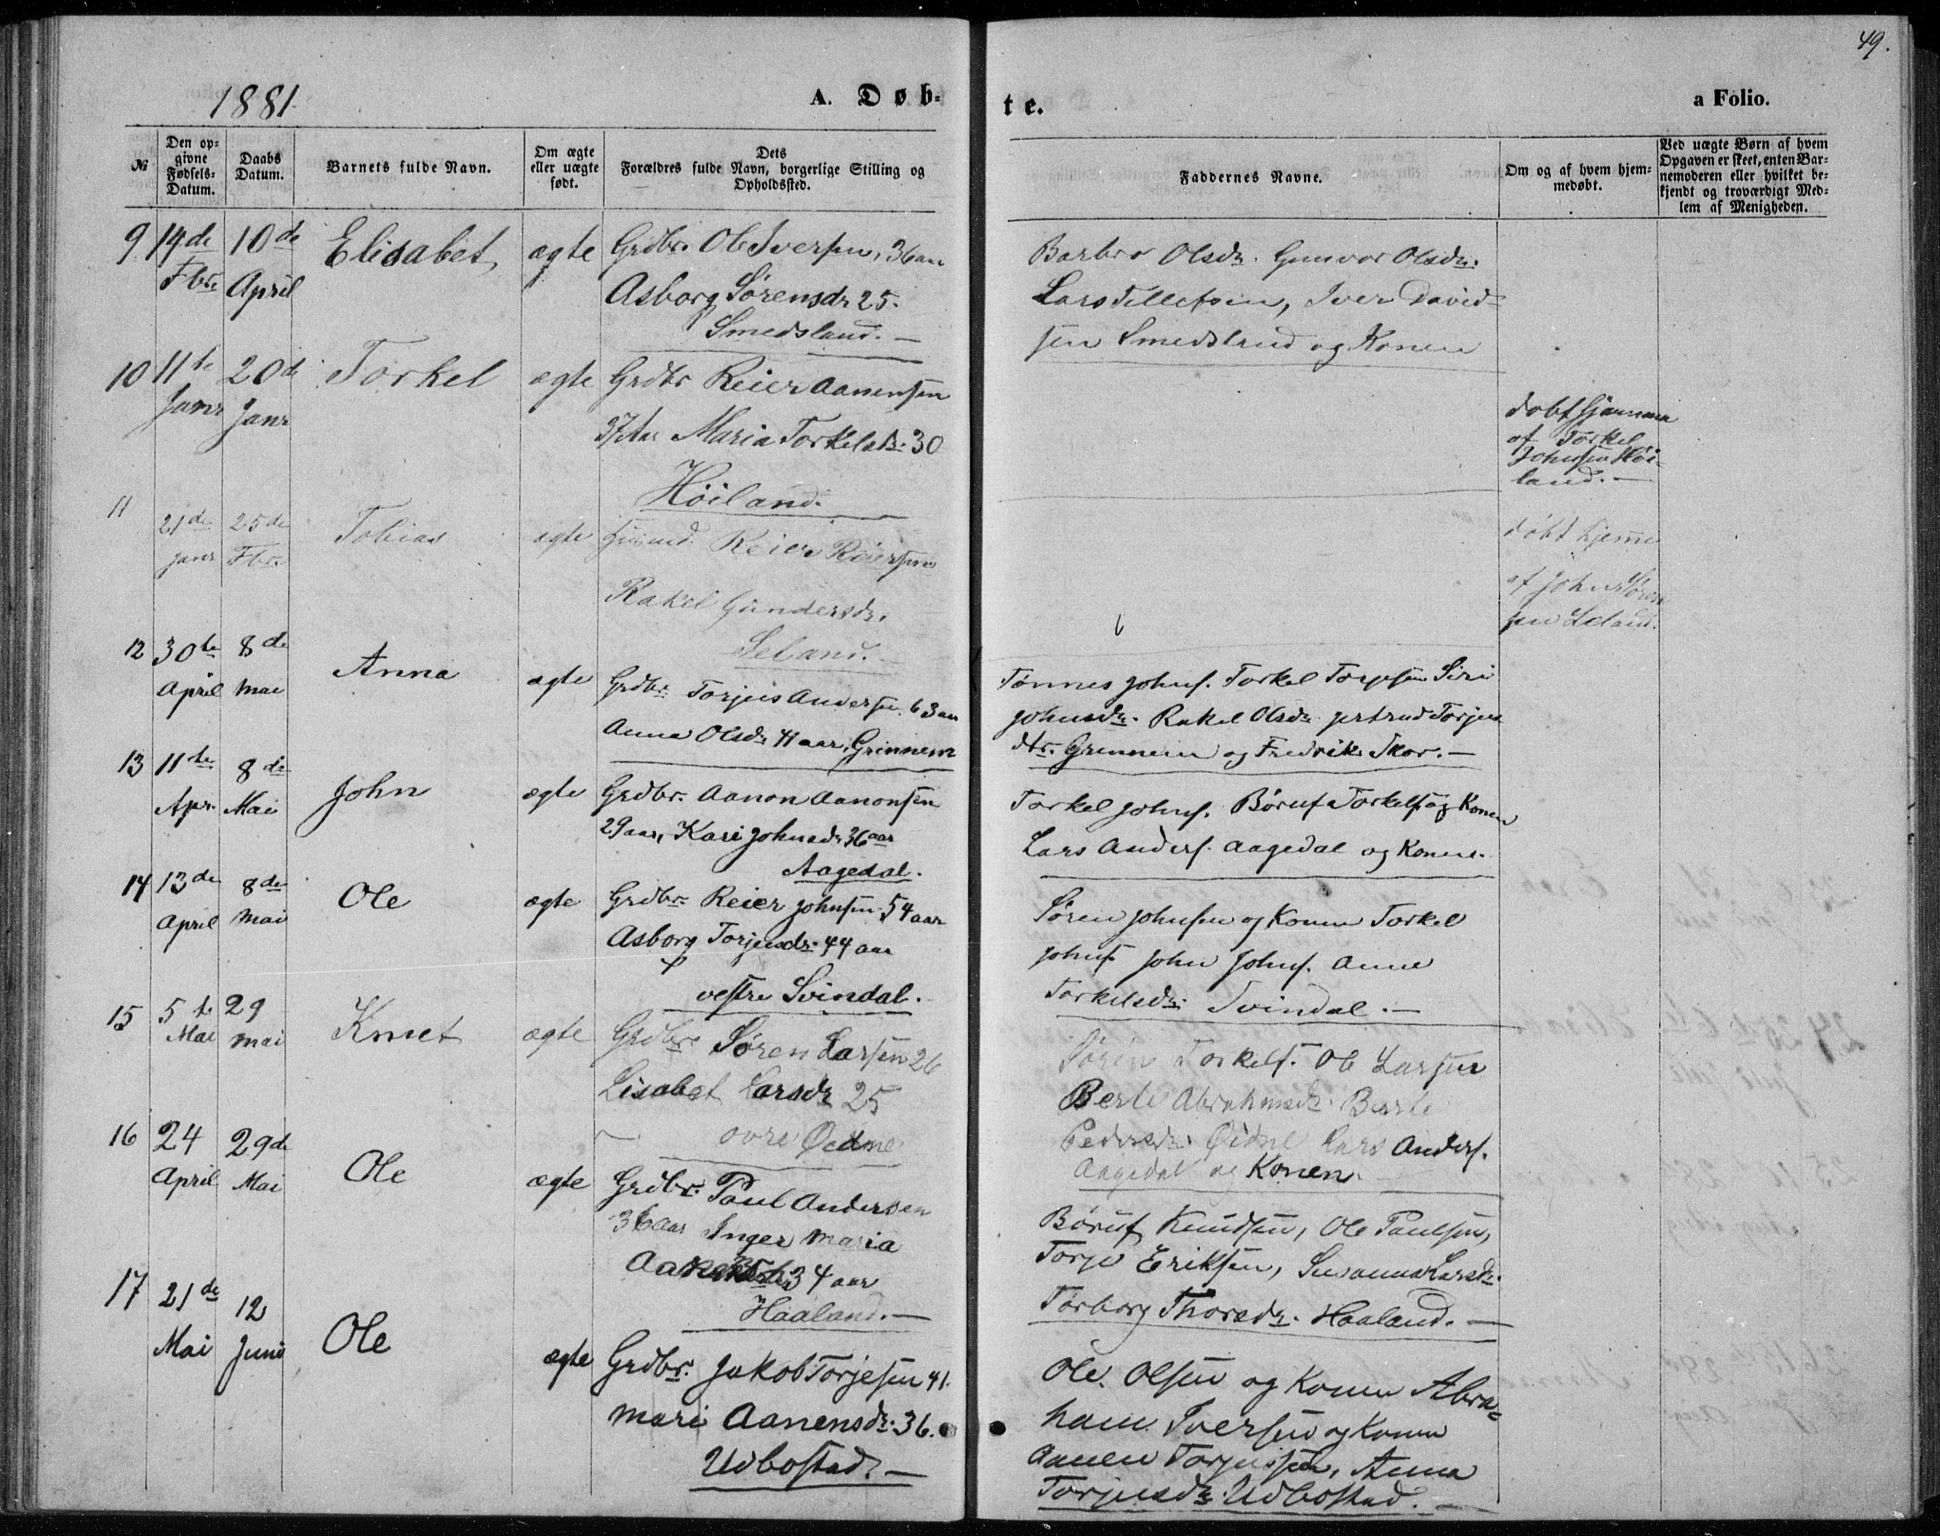 49.
1881
A. Døb-
te.
a Folio.
№
Den op-
givne
Fødsels-
Datum.
Daabs
Datum.
Barnets fulde Navn.
Om ægte
eller uægte
født.
Dets
Forældres fulde Navn, borgerlige Stilling og
Opholdssted.
Faddernes Navne.
Om og af hvem hjem-
medøbt.
Ved uægte Børn af hvem
Opgaven er skeet, enten Bar-
nemoderen eller hvilket be-
kjendt og troværdigt Med-
lem af Menigheden.
9 14de 10de Elisabet ægte Grdbr. Ole Iversen, 36 aar
Fbr. April Asborg Sørensdr 25.
Smedsland. —
Barbro Olsdr. Gunvor Olsdr.
Lars Tellefsen, Iver David-
sen Smedsland og Konen
10 11te 20de Torkel ægte Grdbr Reier Aanensen
Janr Janr 37 Aar Maria Torkelsdr. 30
Høiland.
døbt hjemme
af Torkel
Johnsen Høi-
land. —
11 21de 25de Tobias ægte Reier Reiersen
janr Fbr. Rakel Gundersdr.
Seland. —
døbt hjemme
af John Søren
sen Seland.
12 30te 8de Anna ægte Grdbr. Torjus Andersen 63 aar
April Mai Anna Olsdr 41 aar, Grinnem
Tønnes Johns. Torkel Torjesen Siri
Johnsdr. Rakel Olsdr jertrud Torjus
dtr. Grennem og Fredrik Skor. —
13 11te 8de John ægte Grdbr. Aanon Aanonsen
Apr. Mai 29 aar, Kari Johnsdr 36 aar
Aagedal.
Torkel Johns. Børuf Torkels. og Konen
Lars Anders. Aagedal og Konen.
14 13de 8de Ole ægte Grdbr. Reier Johnsen 54 aar
April Mai Asborg Torjusdr. 44 aar
vestre Svindal.
Søren Johnsen og Konen Torkel
Johns. John Johns. Anne
Torkelsdr. Svindal. —
15 5te 29 Knut ægte Grdbr. Søren Larsen 26
Mai Mai Lisabet Larsdr 25
øvre Øidne
Søren Torkels. Ole Larsen
Berte Abrahamsdr. Berte
Pedersdr. Øidne Lars Anders.
Aagedal og Konen.
16 24 29de Ole ægte Grdbr. Paul Andersen
April Mai 36 aar Inger Maria
34 aar
Haaland. —
Børuf Knudsen, Ole Paulsen,
Torje Eriksen, Susanna Larsdr.
Torborg Thorsdr. Haaland. —
17 21de 12 Ole ægte Grdbr. Jakob Torjesen 41.
Mai Juni Mari Aanensdr. 36.
Udbostad. —
Ole Olsen og Konen Abra-
ham Iversen og Konen
Aanen Torjussen, Anna
Torjusdr. Udbostad. —